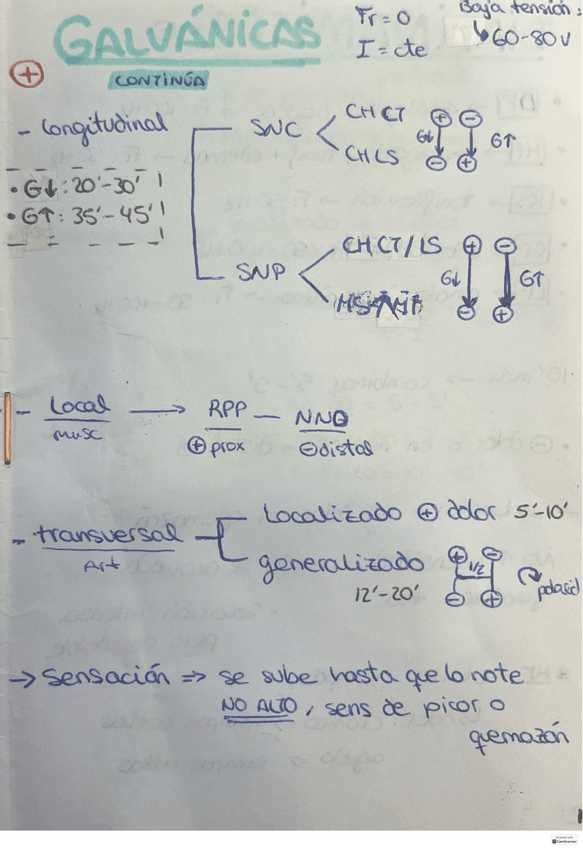 GALVÁNICAS
CONTINÚA
Fr = 0
I = cte
Baja tensión:
↳ 60-80 V
⊕
- Longitudinal
• G↓: 20'-30'
• G↑: 35'-45'
SNC < CH CT ⊕ ⊖
CH LS G↓ G↑ ⊖ ⊕
SNP < CH CT/LS ⊕ ⊖
G↓ G↑
⊖ ⊕
- Local → RPP — NNQ
musc ⊕ prox ⊖ distal
- transversal
Art
Localizado ⊕ dolor 5'-10'
generalizado ⊕ ⊖
12'-20' 1/2 ⊖ ⊕
→ Sensación => se sube hasta que lo note
NO ALTO, sens de picor o
quemazón
CamScanner